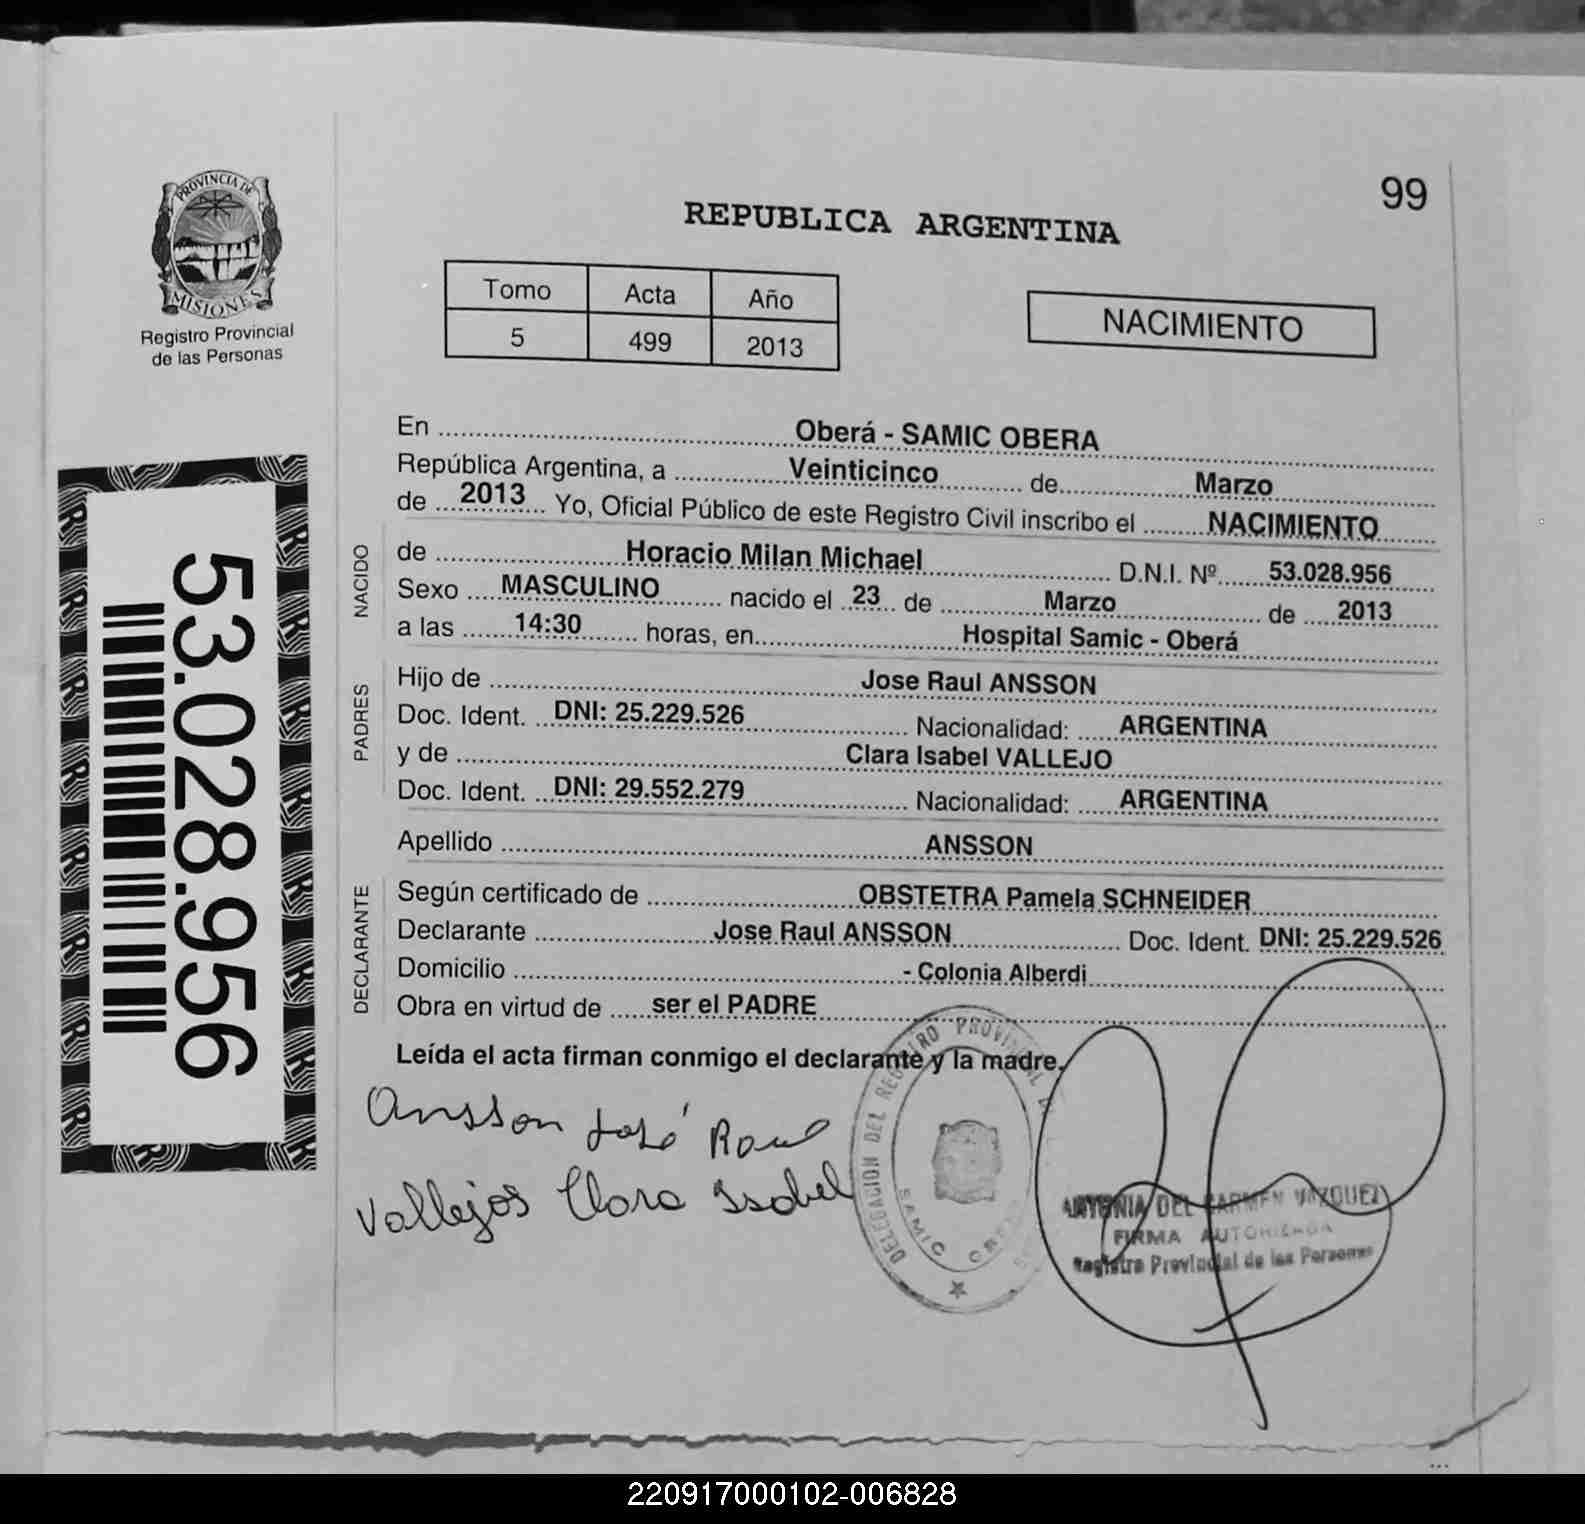 99
REPUBLICA ARGENTINA
PROVINCIA DE
MISIONES
Registro Provincial
de las Personas
Tomo Acta Año
5 499 2013
NACIMIENTO
53.028.956
En Oberá - SAMIC OBERA
República Argentina, a Veinticinco de Marzo
de 2013 Yo, Oficial Público de este Registro Civil inscribo el NACIMIENTO
NACIDO
de Horacio Milan Michael D.N.I. Nº 53.028.956
Sexo MASCULINO nacido el 23 de Marzo de 2013
a las 14:30 horas, en Hospital Samic - Oberá
PADRES
Hijo de Jose Raul ANSSON
Doc. Ident. DNI: 25.229.526 Nacionalidad: ARGENTINA
y de Clara Isabel VALLEJO
Doc. Ident. DNI: 29.552.279 Nacionalidad: ARGENTINA
Apellido ANSSON
DECLARANTE
Según certificado de OBSTETRA Pamela SCHNEIDER
Declarante Jose Raul ANSSON Doc. Ident. DNI: 25.229.526
Domicilio - Colonia Alberdi
Obra en virtud de ser el PADRE
Leída el acta firman conmigo el declarante y la madre.
Ansson José Raul
Vallejos Clara Isabel
DELEGACION DEL REGISTRO PROVINCIAL
SAMIC
ANTONIA DEL CARMEN VAZQUEZ
FIRMA AUTORIZADA
Registro Provincial de las Personas
220917000102-006828